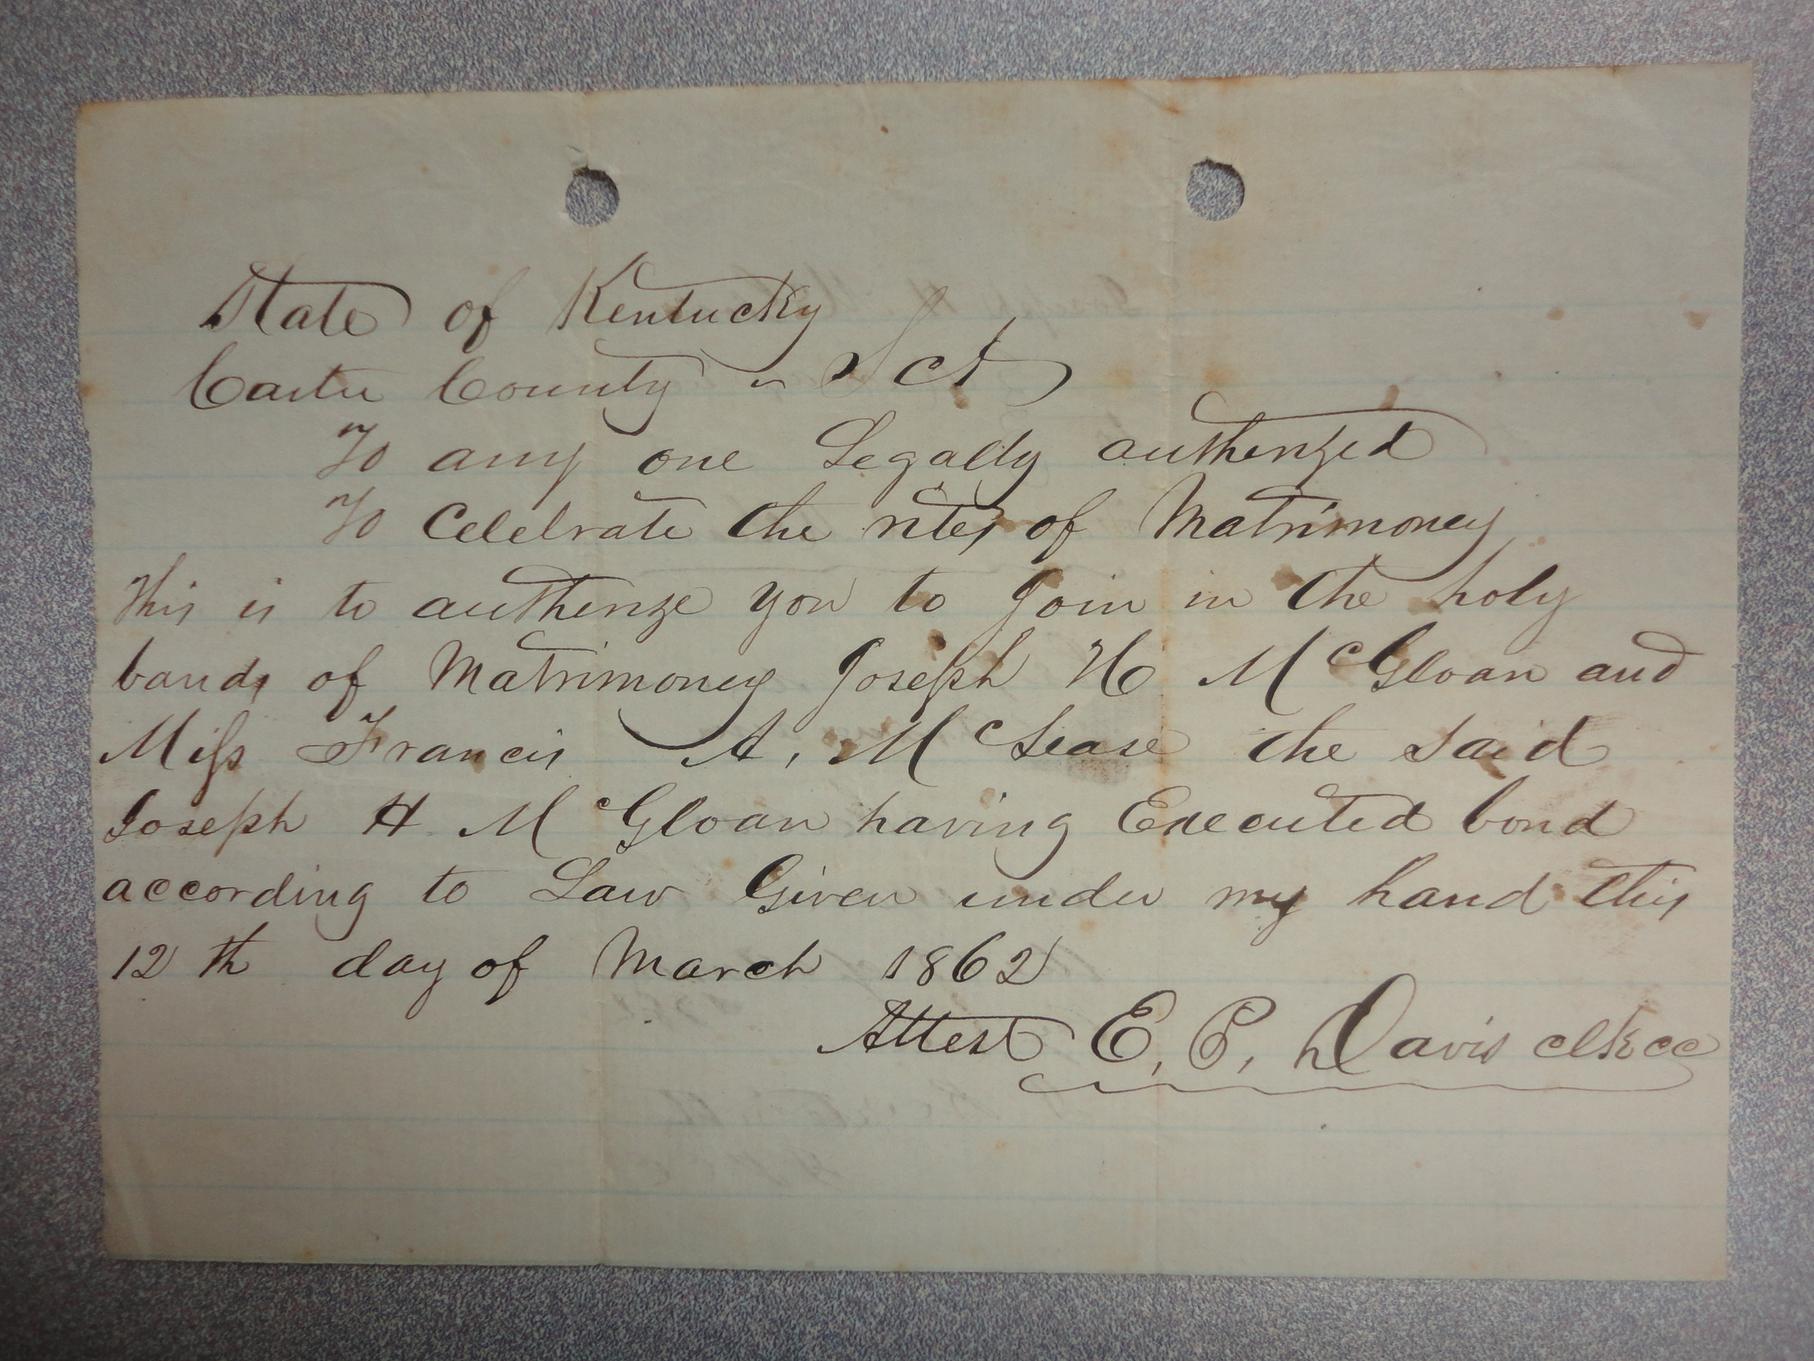 State of Kentucky
Carter County Sct
To any one Legally authorized
To Celebrate the rites of Matrimoney
This is to authorize you to Join in the holy
bands of Matrimoney Joseph H McGloan and
Miss Francis A. McLease the said
Joseph H McGloan having Executed bond
according to Law Given under my hand this
12th day of March 1862
Attest E. P. Davis clk cc